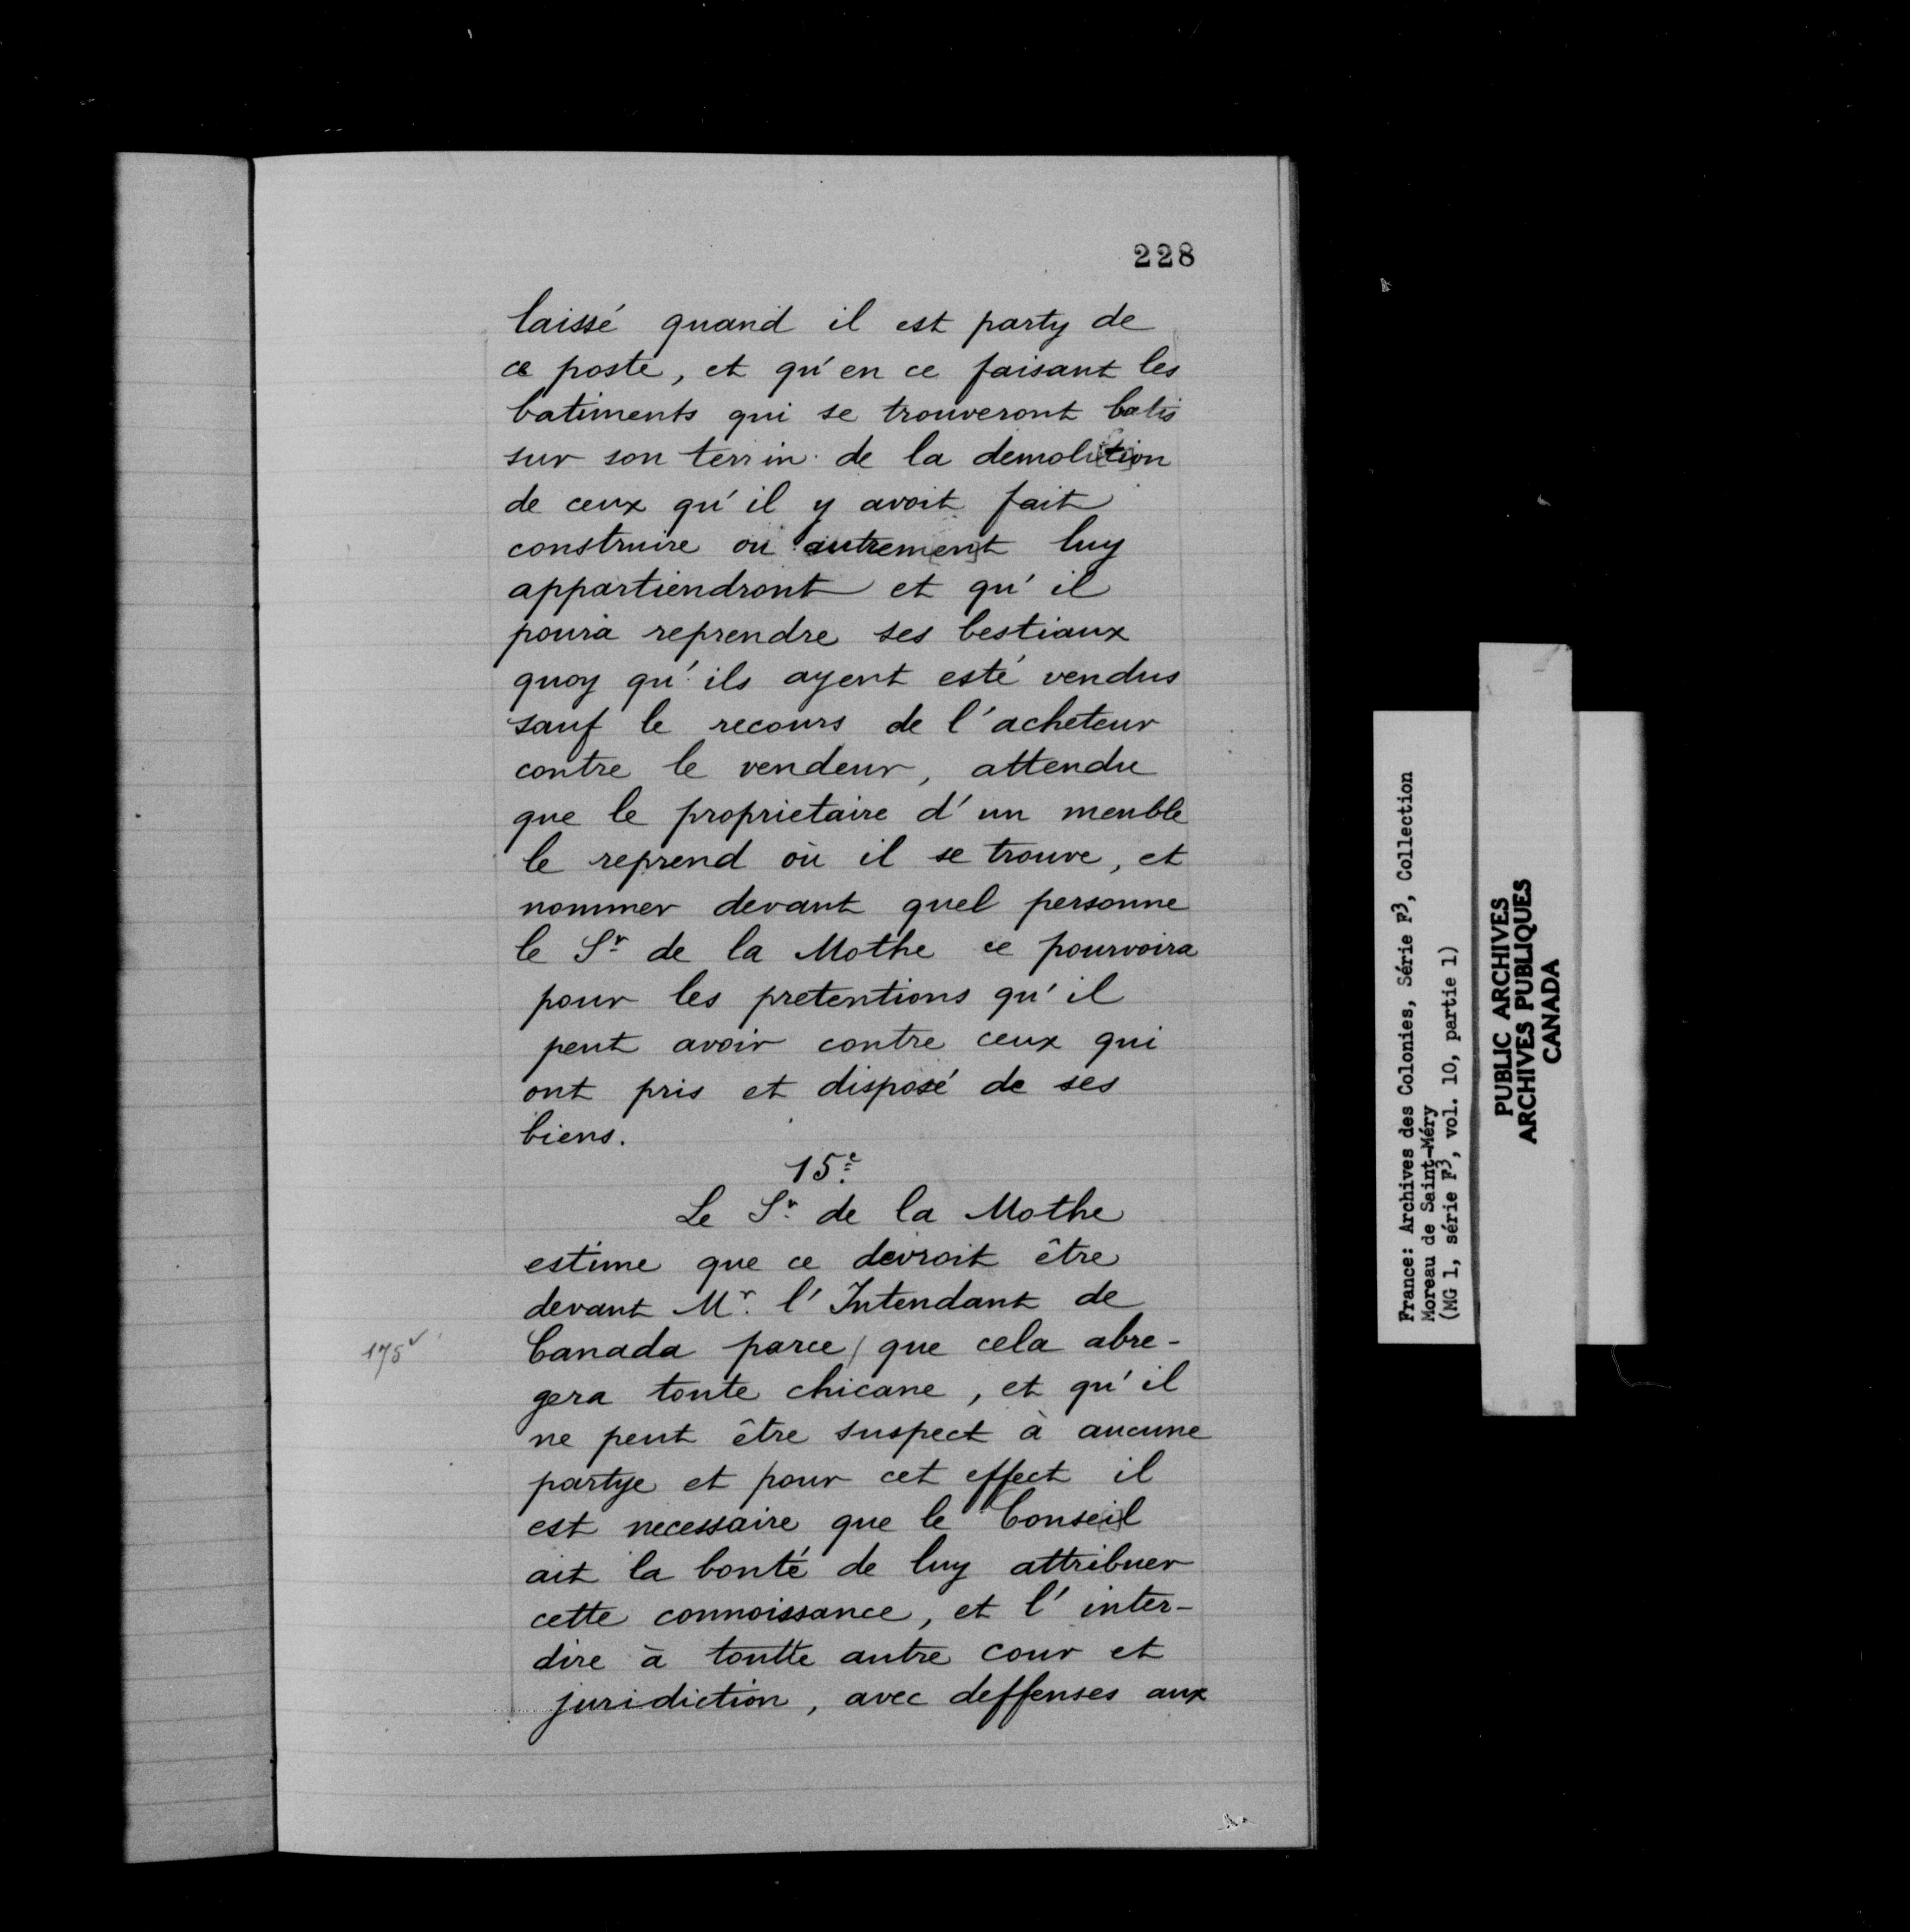 228
laissé quand il est party de
ce poste, et qu'en ce faisant les
batiments qui se trouveront batis
sur son terrin de la demolition
de ceux qu'il y avoit fait
construire ou autrement luy
appartiendront et qu'il
poura reprendre ses bestiaux
quoy qu'ils ayent esté vendus
sauf le recours de l'acheteur
contre le vendeur, attendu
que le proprietaire d'un meuble
le reprend où il se trouve, et
nommer devant quel personne
le Sr de la Mothe ce pourvoira
pour les pretentions qu'il
peut avoir contre ceux qui
ont pris et disposé de ses
biens.
15e
Le Sr de la Mothe
estime que ce devroit être
devant Mr. l'Intendant de
175v Canada parce / que cela abre-
gera toute chicane, et qu'il
ne peut être suspect à aucune
partye et pour cet effect il
est necessaire que le Conseil
ait la bonté de luy attribuer
cette connoissance, et l'inter-
dire à toutte autre cour et
juridiction, avec deffenses aux
France: Archives des Colonies, Série F3, Collection
Moreau de Saint-Méry
(MG 1, série F3, vol. 10, partie 1)
PUBLIC ARCHIVES
ARCHIVES PUBLIQUES
CANADA